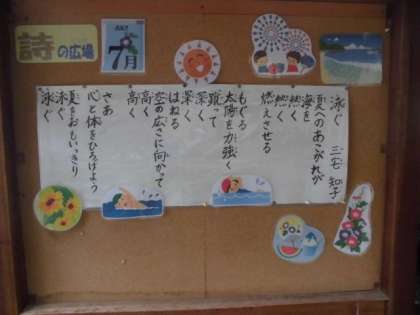 詩の広場
JULY
7月
泳ぐ
三宅 知子
夏へのあこがれが
海を
熱く
熱く
燃えさせる
もぐる
太陽を力強く
蹴って
深く
深く
はねる
空の広さに向かって
高く
高く
さあ
心と体をひろげよう
夏をおもいっきり
泳ぐ
泳ぐ